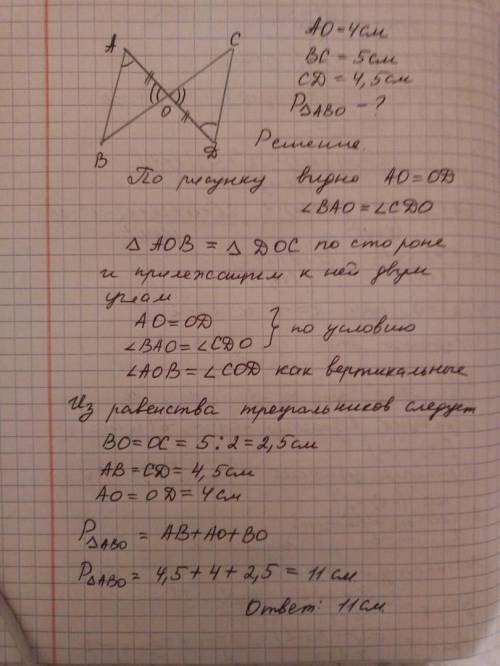 A
C
O
B
D
AO=4см
BC = 5см
CD = 4,5см
P△ABO - ?
Решение.
По рисунку видно AO=OD
∠BAO=∠CDO
△ AOB = △ DOC по стороне
и прилежащем к ней двум
углам
AO=OD
∠BAO=∠CDO } по условию
∠AOB=∠COD как вертикальные
Из равенства треугольников следует
BO=OC= 5:2=2,5см
AB=CD= 4,5см
AO= OD=4см
P△ABO = AB+AO+BO
P△ABO= 4,5+4+2,5 = 11см
Ответ: 11см.